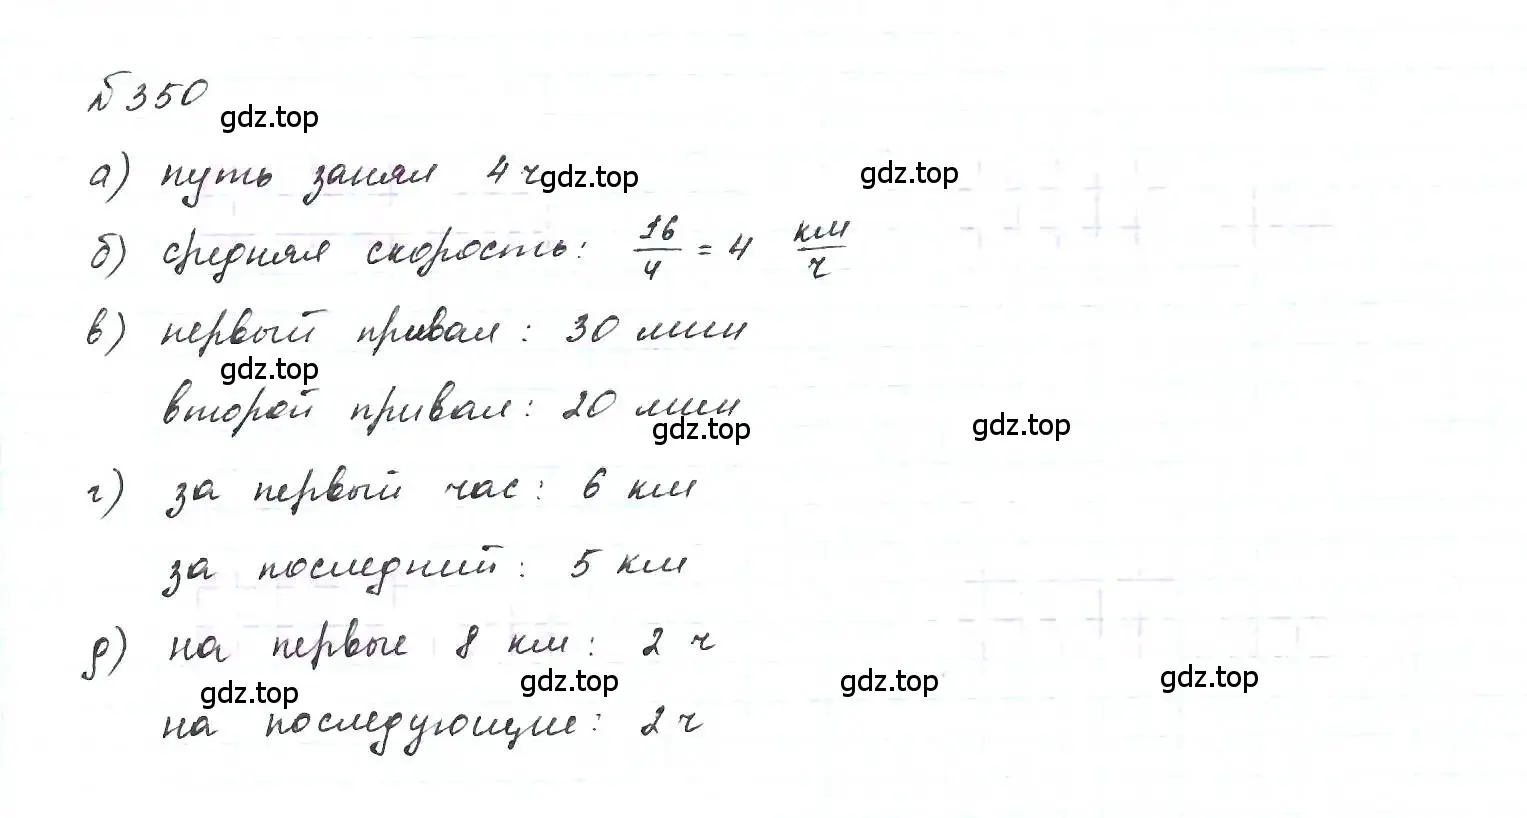 №350
gdz.top
а) путь занял 4 ч
gdz.top
gdz.top
б) средняя скорость: 16/4 = 4 км/ч
в) первый привал: 30 мин
gdz.top
второй привал: 20 мин
gdz.top
gdz.top
г) за первый час: 6 км
за последний: 5 км
д) на первые 8 км: 2 ч
gdz.top
gdz.top
gdz.top
gdz.top
на последующие: 2 ч